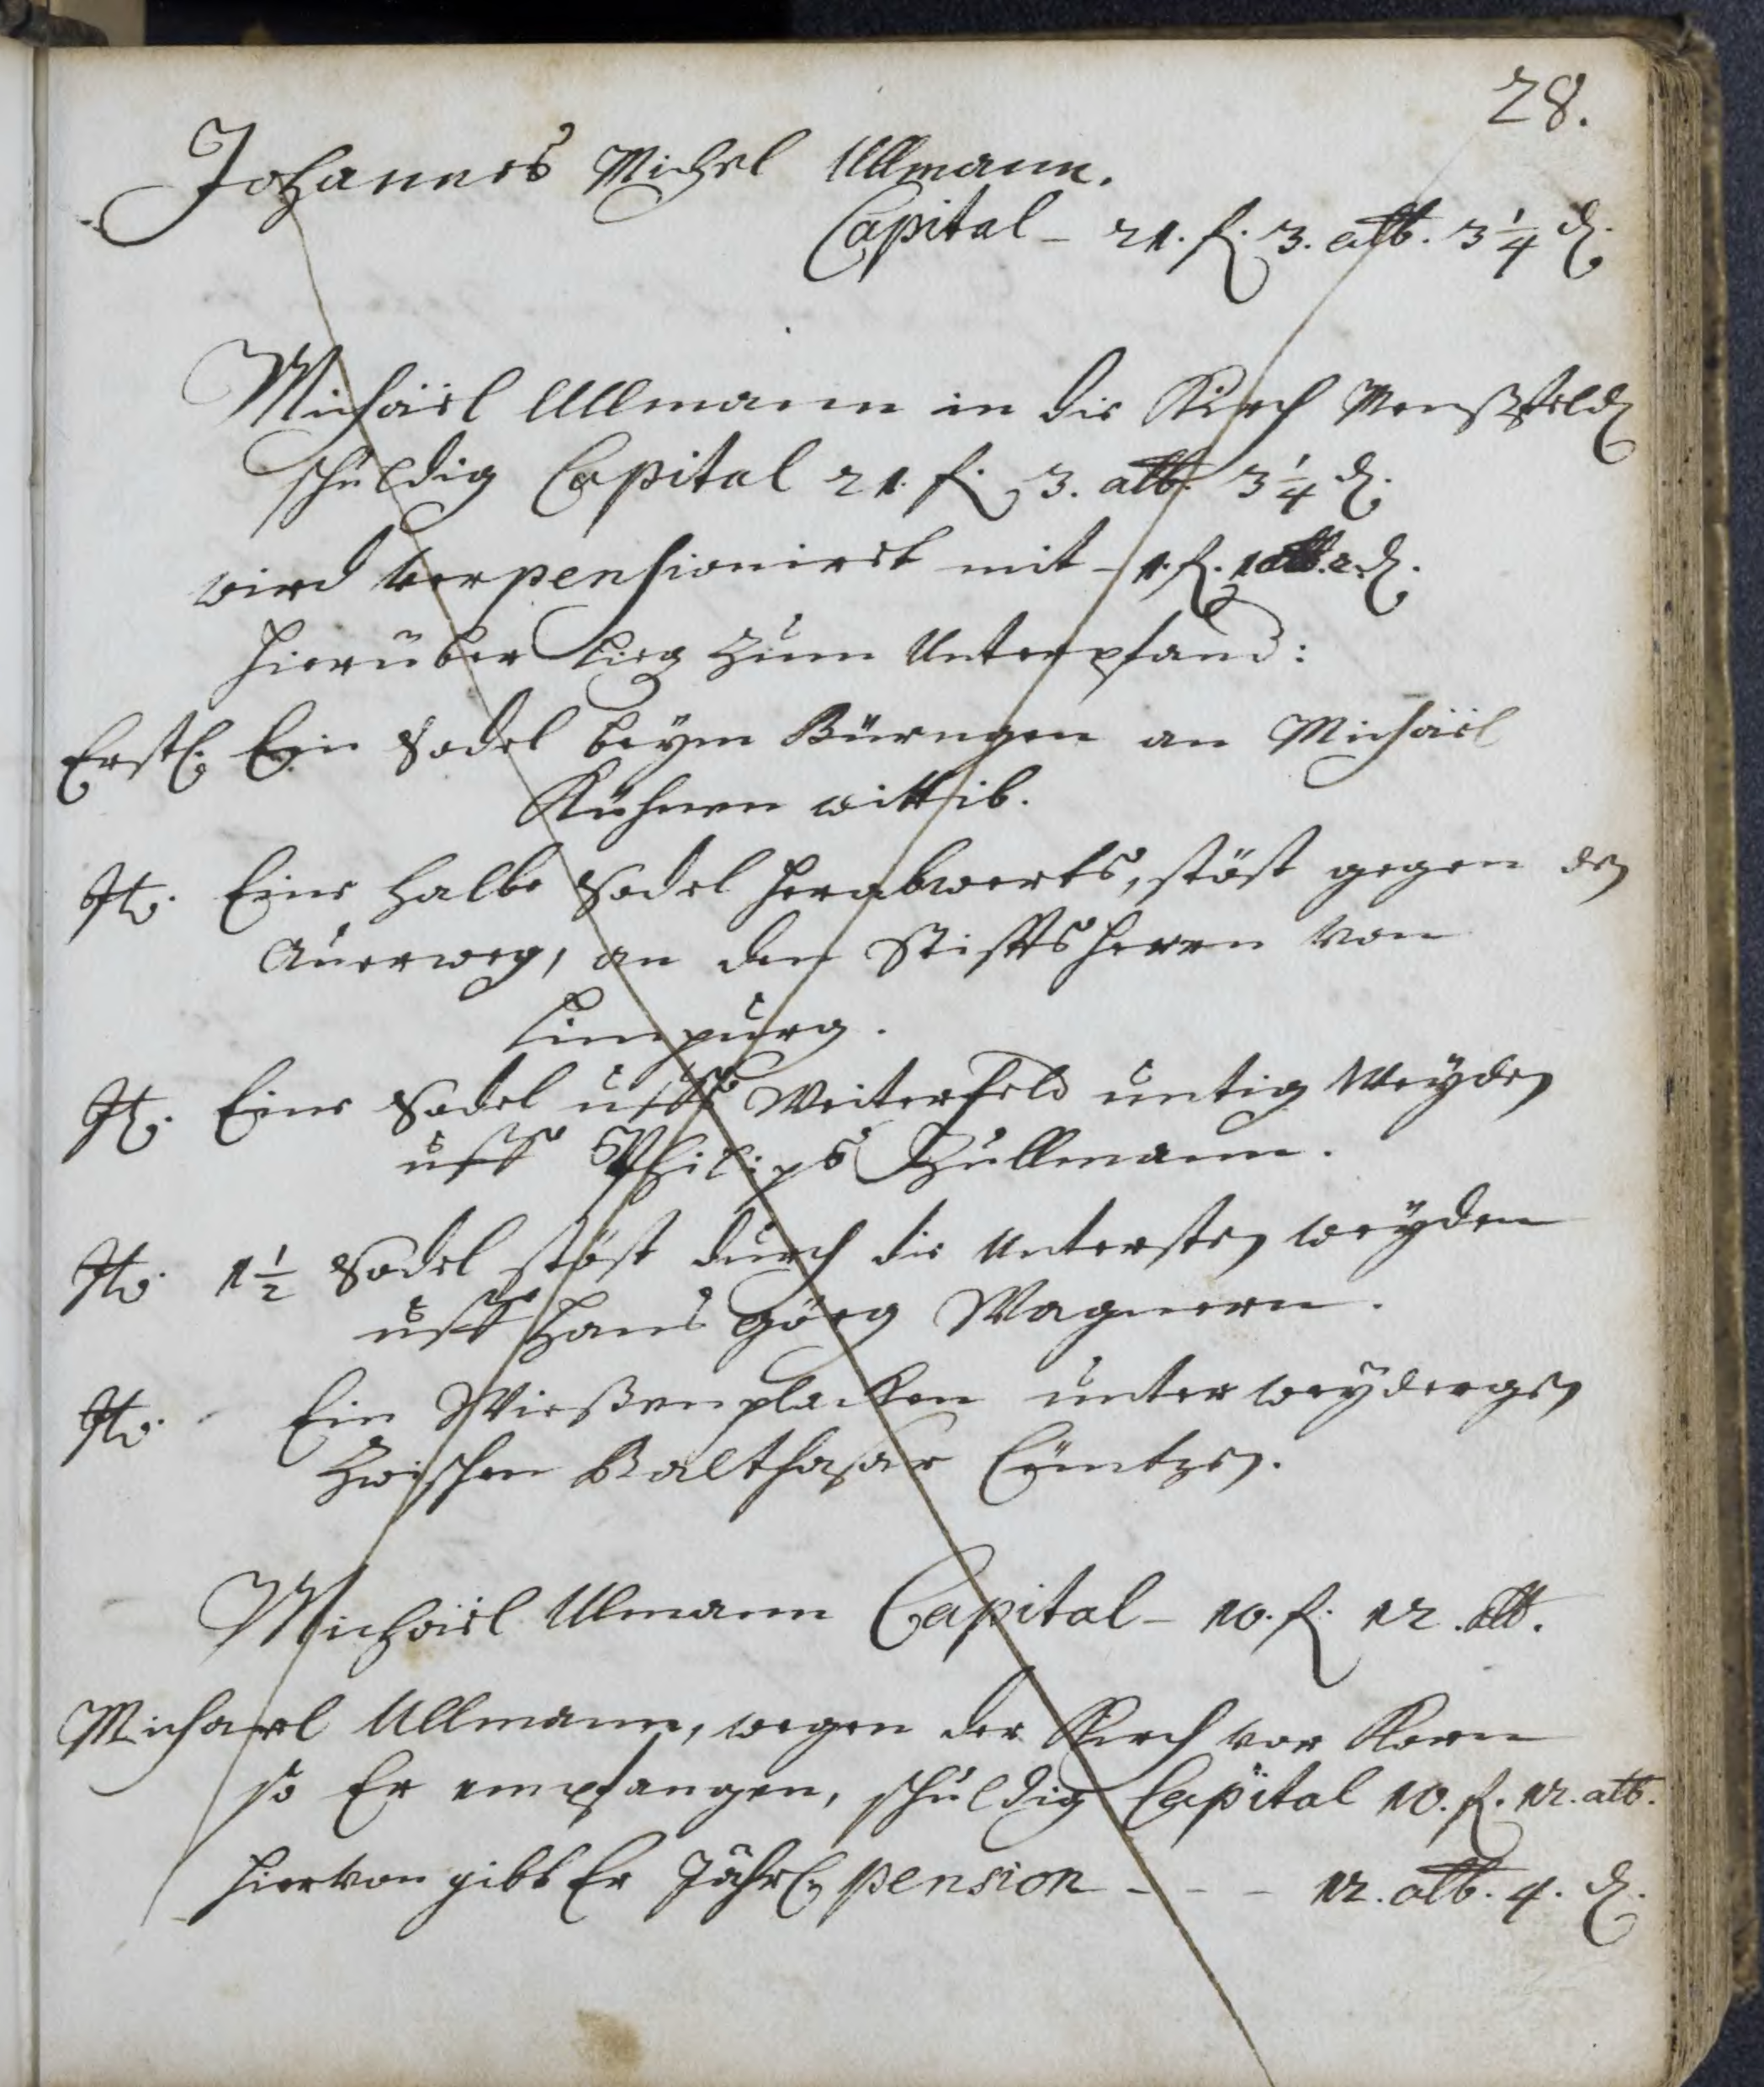 28.
Johannes Michel Ullmann.
Capital - 21. f. 3. alb. 3 1/4 d.
Michäel Ullmann in die Kirch Menßfeld
schuldig Capital 21. f. 3. alb. 3 1/4 d.
wird verpensioniret mit - 1. f. 1 alb. 2. d.
hierüber lieg zum Unterpfand:
Erstl. Ein Sodel beym Bürngen an Michäel
Kühnen wittib.
It. Eine halbe Sodel herabwerts, stöst gegen den
Auerweg, an den Stiffts herrn von
Limpurg.
It. Eine Sodel uffs Weiterfeld untig Weyden
uff Philips Züllmann.
It. 1 1/2 Sodel stöst durch die Untersten weyden
uff Hans Görg Wagnern.
It. Ein Wießenplacken unter weydergen
zwischen Balthasar Cüntzen.
Michäel Ulmann Capital - 10. f. 12. alb.
Michael Ullmann, wegen der Kirch vor Korn
so Er empfangen, schuldig Capital 10. f. 12. alb.
hiervon gibt Er Jährl. pension - - - 12. alb. 4. d.